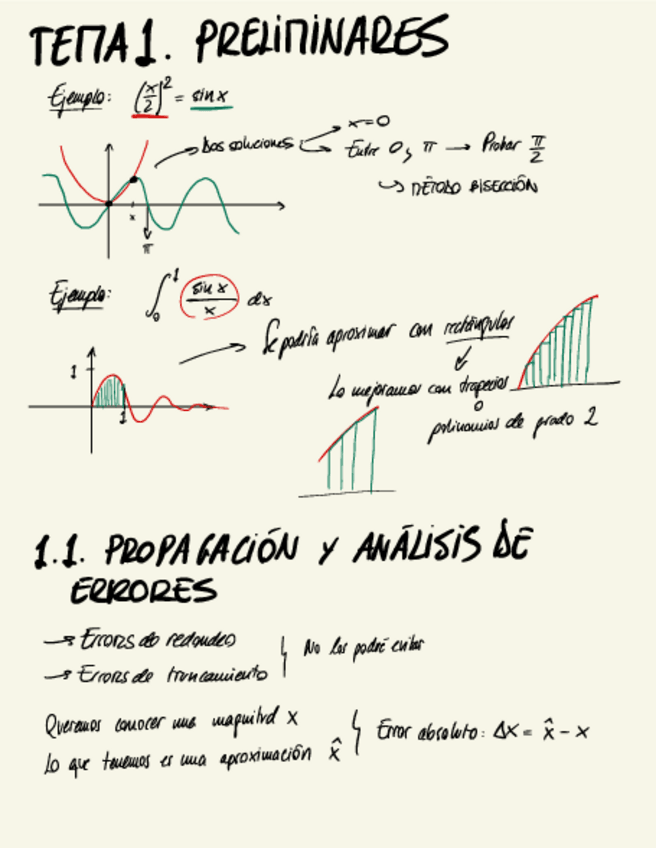 TEMA 1. PRELIMINARES
Ejemplo: (x/2)² = sin x
Dos soluciones
x=0
Entre 0 y π → Probar π/2
↪ MÉTODO BISECCIÓN
x
π
Ejemplo: ∫₀¹ sin x / x dx
Se podría aproximar con rectángulos
Lo mejoramos con trapecios
o
polinomios de grado 2
1
1
1.1. PROPAGACIÓN Y ANÁLISIS DE
ERRORES
→ Errores de redondeo
→ Errores de truncamiento
No los podré evitar
Queremos conocer una magnitud x
Lo que tenemos es una aproximación x̂
Error absoluto: Δx = x̂ - x